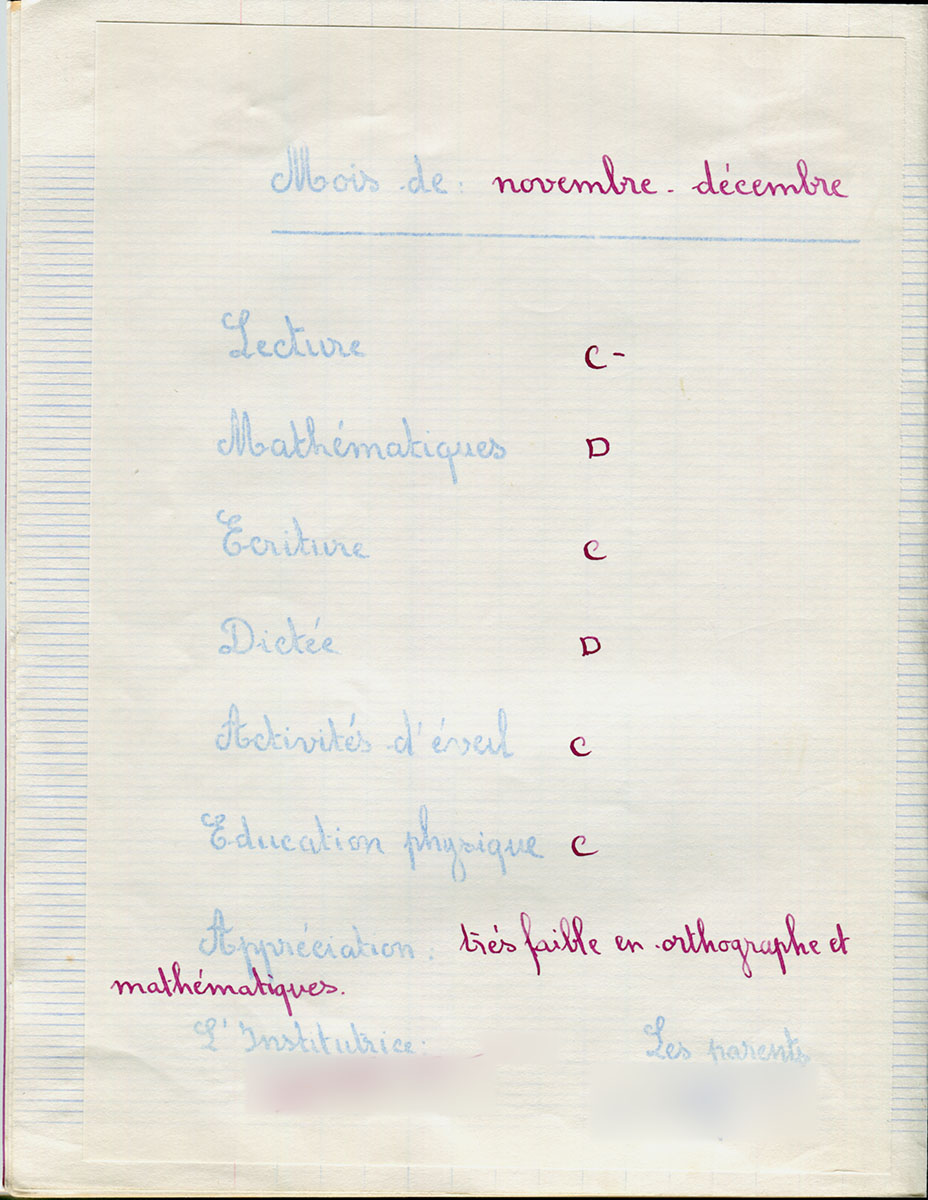 Mois de : novembre - décembre
Lecture C -
Mathématiques D
Ecriture C
Dictée D
Activités d'éveil C
Education physique C
Appréciation . trés faible en orthographe et
mathématiques.
L'Institutrice : Les parents